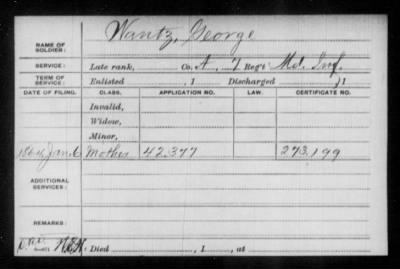 Wantz, George
NAME OF SOLDIER:
SERVICE: Late rank, Co. A, 7 Reg't Md. Inf.
TERM OF SERVICE: Enlisted , 1 Discharged , 1
DATE OF FILING. CLASS. APPLICATION NO. LAW. CERTIFICATE NO.
Invalid,
Widow,
Minor,
1864 Jan 6 Mother 42.377 273.199
ADDITIONAL SERVICES:
REMARKS:
Died , 1 , at